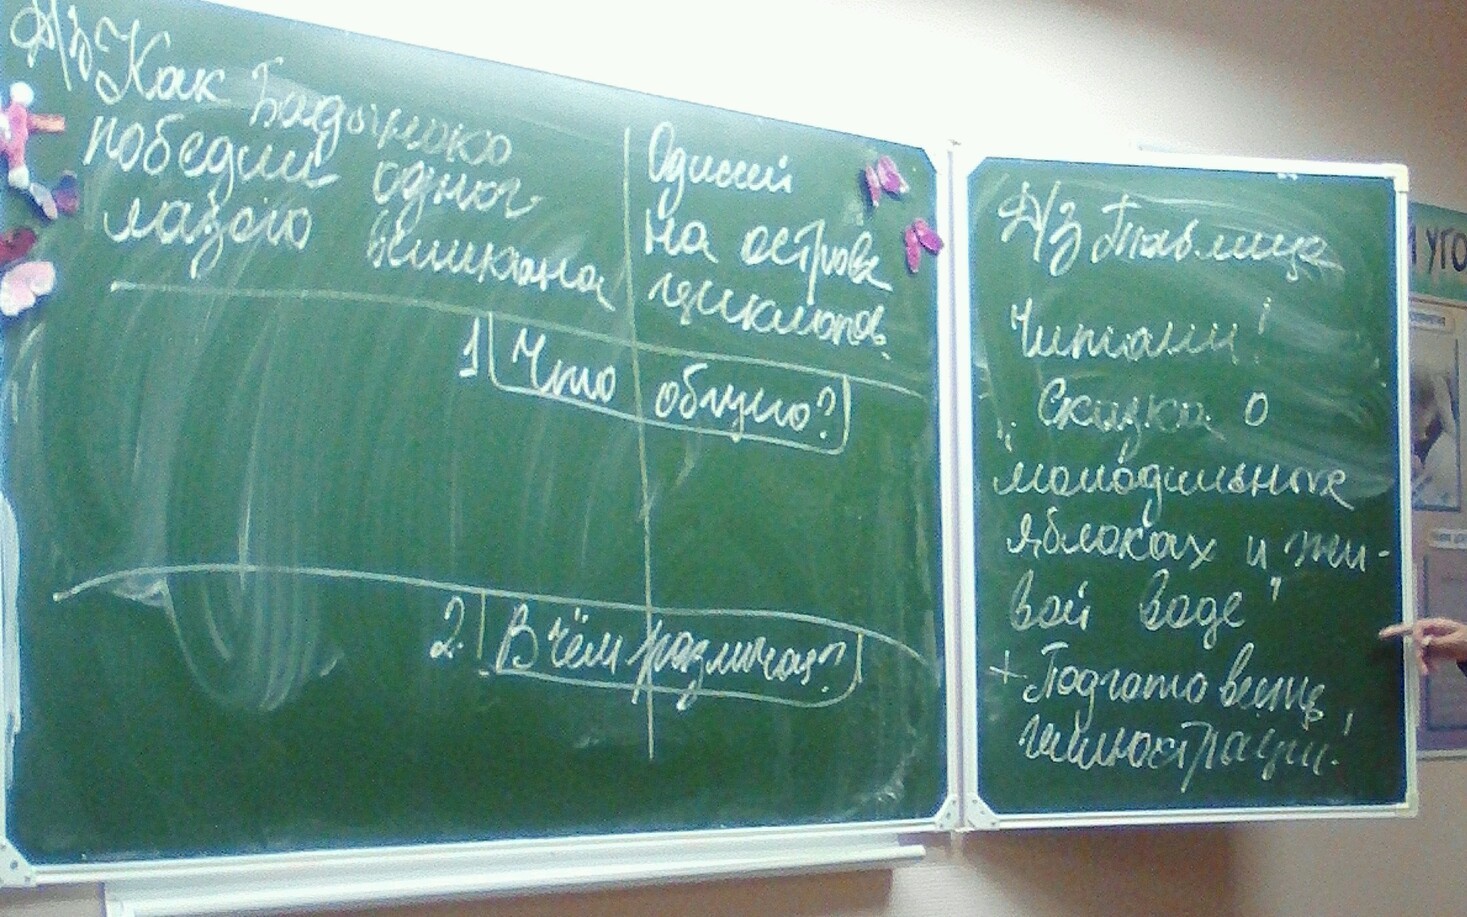 Д/з Как Бадыноко
победил одног-
лазого великана
Одиссей
на острове
циклопов.
1. Что общего?
2. В чём различия?
Д/з Таблица
Читали!
"Сказка о
молодильных
яблоках и жи-
вой воде"
+ Подготовить
иллюстрации!
И УГО